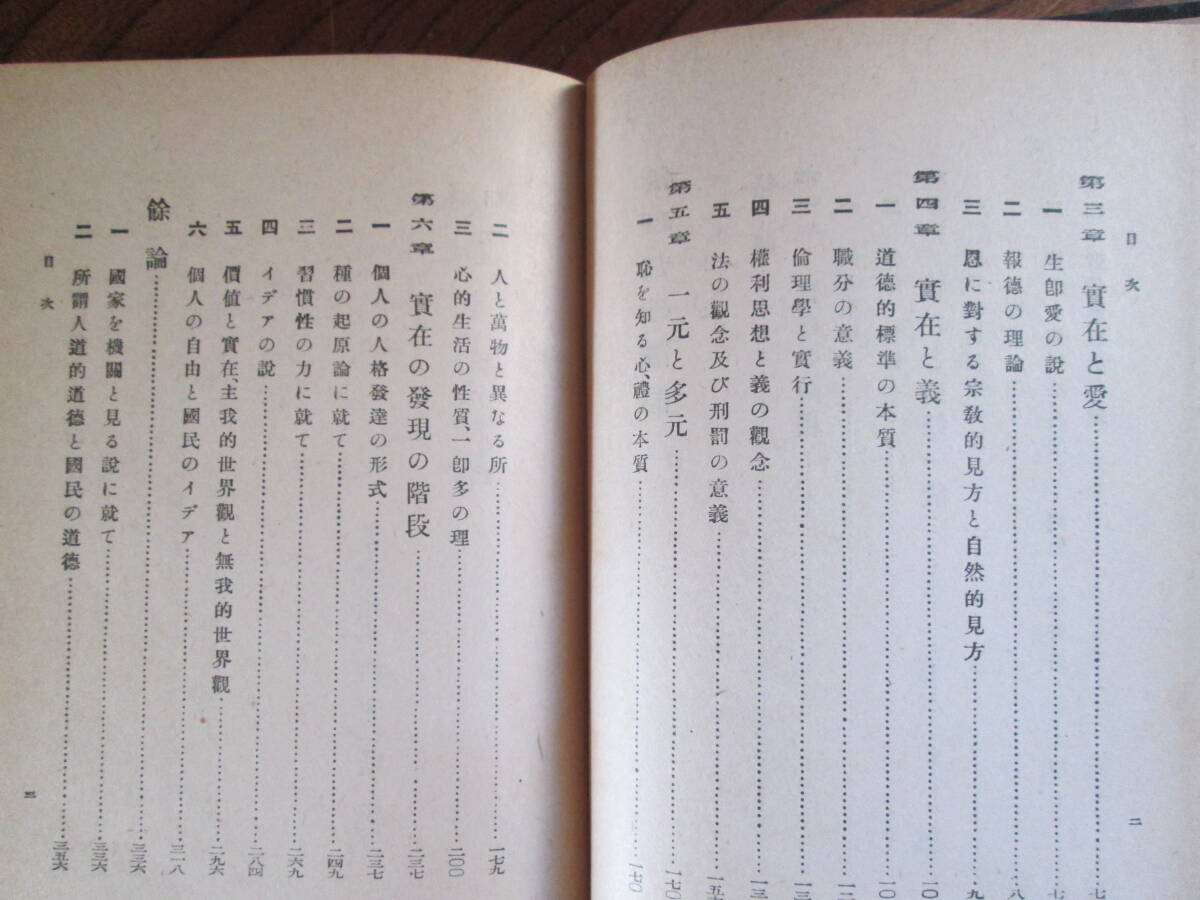 目次
第三章 實在と愛……七
一 生卽愛の說……七
二 報德の理論……八
三 恩に對する宗敎的見方と自然的見方……九
第四章 實在と義……一〇
一 道德的標準の本質……一〇
二 職分の意義……一二
三 倫理學と實行……一三
四 權利思想と義の觀念……一三
五 法の觀念及び刑罰の意義……一五
第五章 一元と多元……一七〇
一 恥を知る心、禮の本質……一七〇
二
二 人と萬物と異なる所……一七九
三 心的生活の性質、一卽多の理……二〇〇
第六章 實在の發現の階段……二三七
一 個人の人格發達の形式……二三七
二 種の起原論に就て……二四九
三 習慣性の力に就て……二六九
四 イデアの說……二八四
五 價値と實在、主我的世界觀と無我的世界觀……二九六
六 個人の自由と國民のイデア……三一八
餘論……三三六
一 國家を機關と見る說に就て……三三六
二 所謂人道的道德と國民の道德……三五六
目次
三